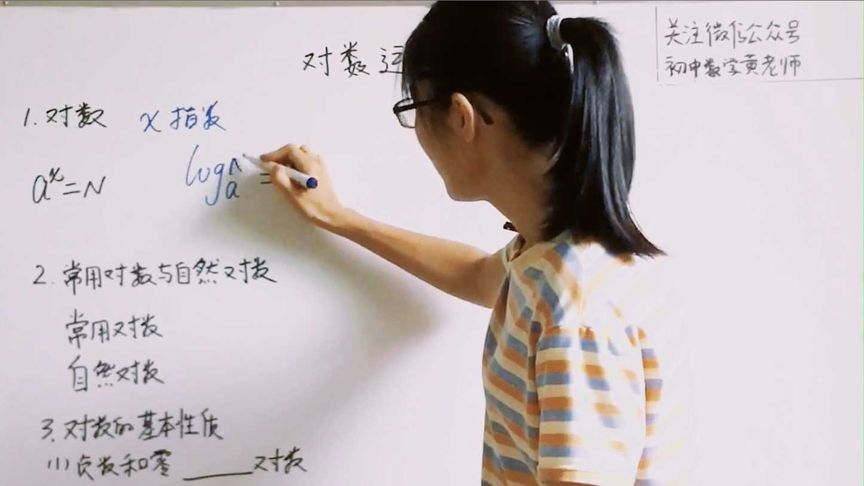 对数运
关注微信公众号
初中数学黄老师
1.对数 x 指数
aˣ=N logₐN =
2.常用对数与自然对数
常用对数
自然对数
3.对数的基本性质
(1)负数和零____对数